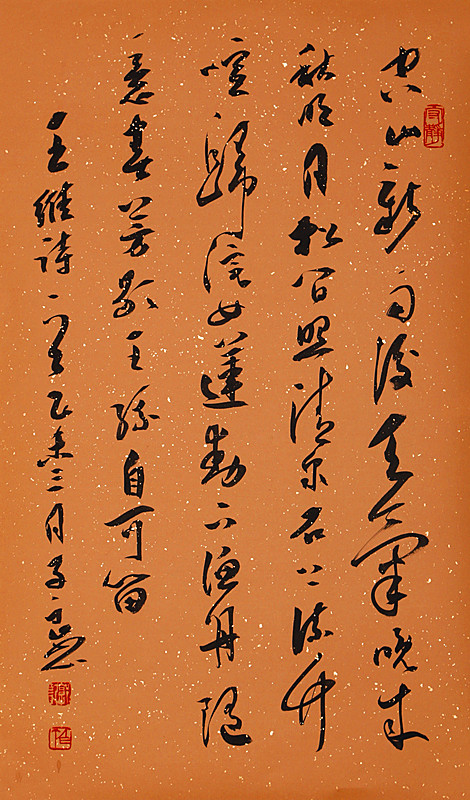 空山新雨後天氣晚來
秋明月松間照清泉石上流竹
喧歸浣女蓮動下漁舟隨
意春芳歇王孫自可留
王維詩一首乙未三月